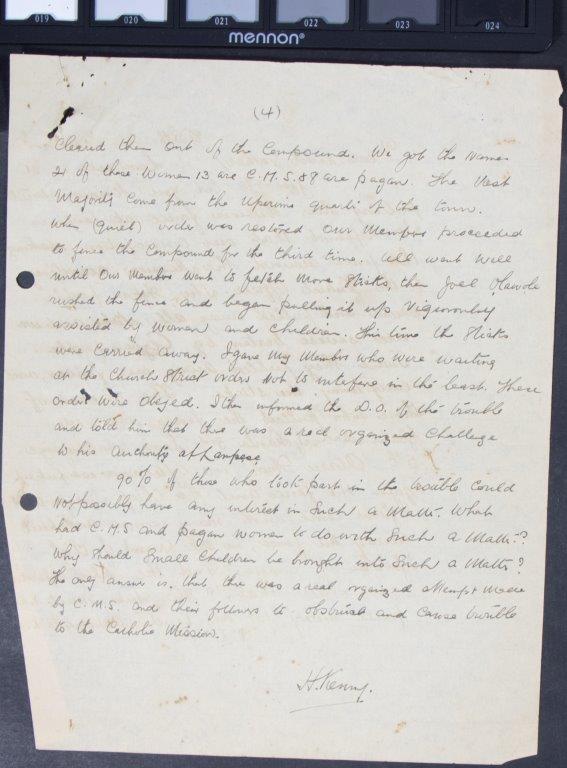 019 020 021 022 023 024
mennon®
(4)
Cleared them out of the Compound. We got the names
21 of these women 13 are C.M.S. 8 are pagan. The Vast
Majority come from the quarter of the town.
When (quiet) order was restored our Members proceeded
to fence the Compound for the third time. All went well
until our Members went to fetch more sticks, then Joel
rushed the fence and began pulling it up Vigorously
assisted by women and children. This time the sticks
were carried away. I gave my Members who were waiting
on the Church Street orders not to interfere in the least. These
orders were obeyed. I then informed the D.O. of the trouble
and told him that there was a real organized Challenge
to his authority at
90% of those who took part in the trouble could
not possibly have any interest in such a Matter. What
had C.M.S and pagan women to do with such a Matter?
Why should small children be brought into such a Matter?
The only answer is, that there was a real organized attempt made
by C.M.S. and their followers to obstruct and cause trouble
to the Catholic Mission.
H. Kenny.